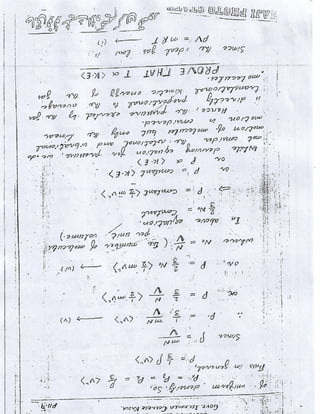 Govt. Islamia College
of uniform density. So,
Px = Py = Pz = 1/3 ρ <v²>
Thus in general,
P = 1/3 ρ <v²>
Since ρ = mN/V
∴ P = 1/3 mN/V <v²> → (v)
or P = 2/3 N/V <1/2 mv²>
or, P = 2/3 N₀ <1/2 mv²> → (vi)
where N₀ = N/V (the number of molecules
per unit volume).
In above equation
2/3 N₀ = Constant
⇒ P = constant <1/2 mv²>
or P = constant <K.E>
or P ∝ <K.E>
While deriving equation for pressure, we do
not consider the rotational and vibrational
motion of molecules but only the linear
motion is considered.
Hence, the pressure exerted by the gas
is directly proportional to the average
translational kinetic energy of the gas
molecules.
PROVE THAT T ∝ <K.E>
Since the ideal gas law is
PV = nRT → (i)
HAJI PHOTO STATE